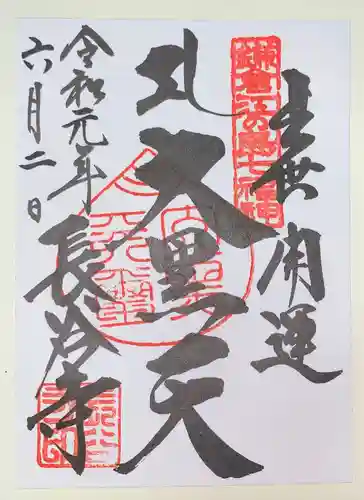 出世開運
鎌倉江の島七福神
大黒天
長谷寺
令和元年
六月二日